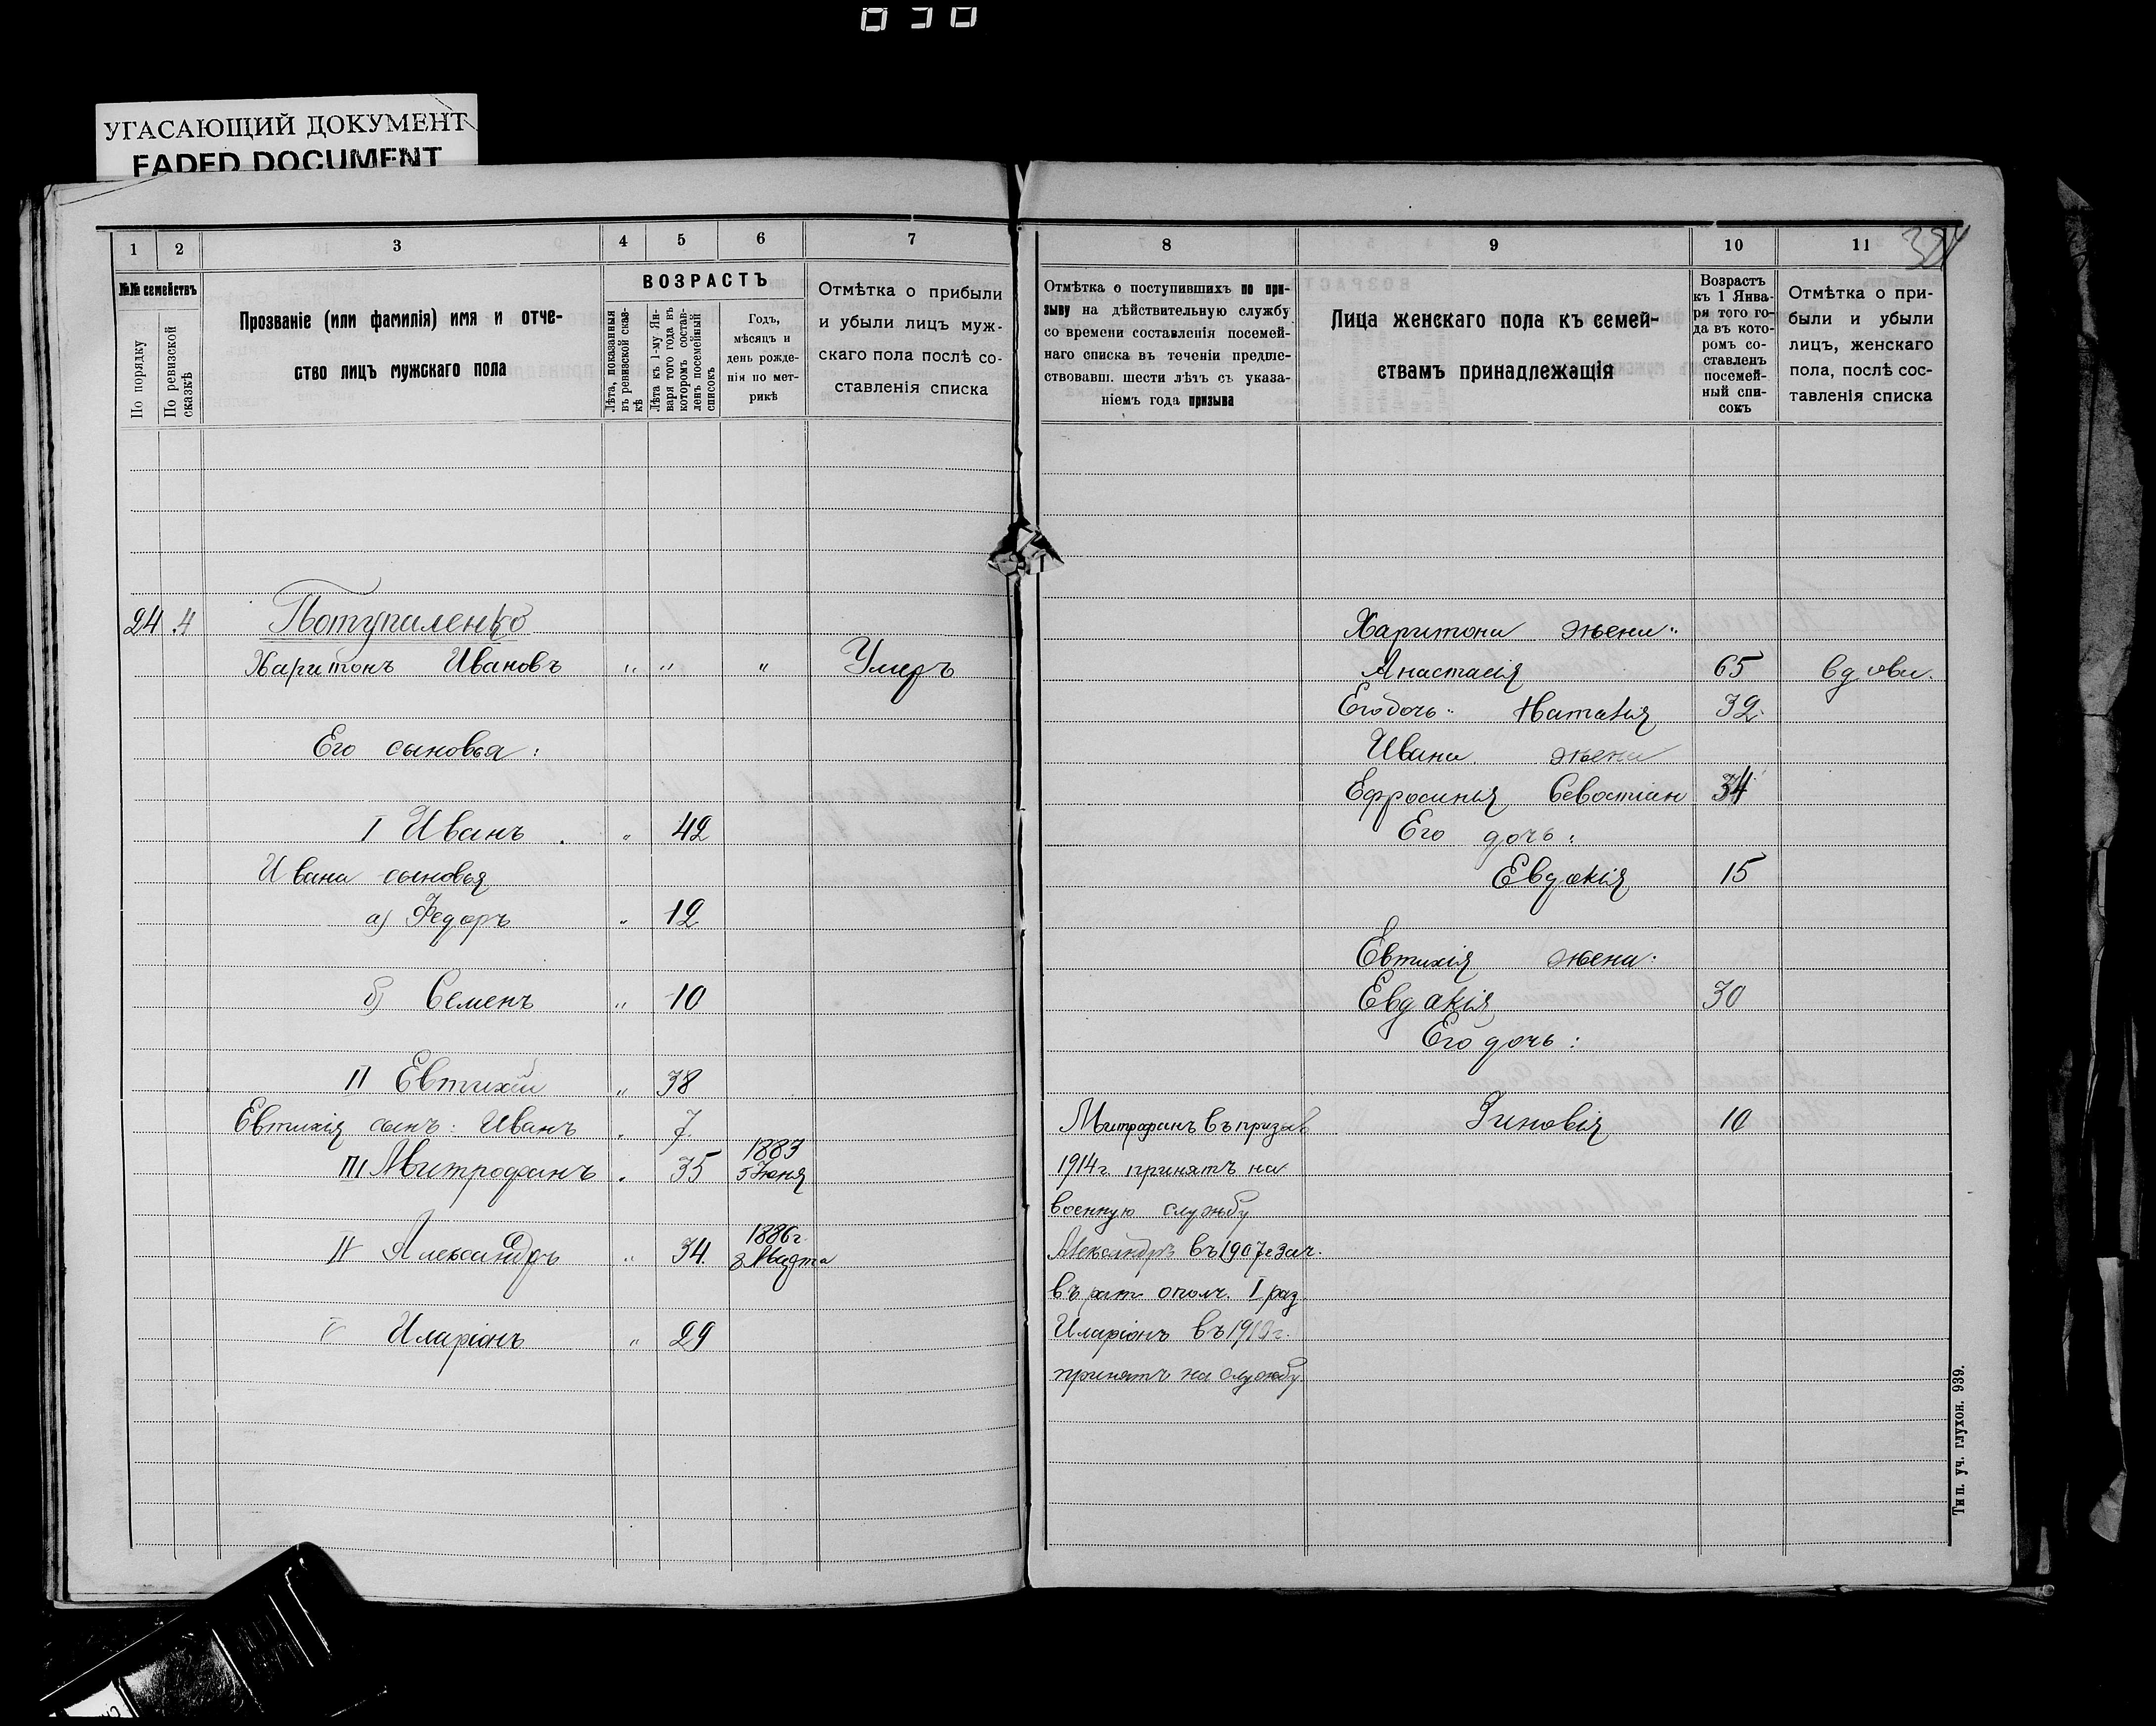 030
УГАСАЮЩИЙ ДОКУМЕНТ
FADED DOCUMENT
1 2 3 4 5 6 7
№№ семействъ
По порядку
По ревизской сказкѣ
Прозваніе (или фамилія) имя и отче-
ство лицъ мужскаго пола
ВОЗРАСТЪ
Лѣта, показанныя
въ ревизской сказ-
кѣ
Лѣта къ 1-му Ян-
варя того года въ
которомъ состав-
ленъ посемейный
списокъ
Годъ,
мѣсяцъ и
день рожде-
нія по мет-
рикѣ
Отмѣтка о прибыли
и убыли лицъ муж-
скаго пола послѣ со-
ставленія списка
24 4 Потупиленко
Харитонъ Ивановъ " " " Умеръ
Его сыновья:
I Иванъ. " 42
Ивана сыновья
а) Федоръ " 12
б) Семенъ " 10
II Евтихій " 38
Евтихія сынъ: Иванъ " 7
III Митрофанъ " 35 1883 5 Іюня
IV Александръ " 34. 1886 г. Августа
V Иларіонъ " 29
8 9 10 11
324
Отмѣтка о поступившихъ по при-
зыву на дѣйствительную службу
со времени составленія посемей-
наго списка въ теченіи предше-
ствовавш. шести лѣтъ съ указа-
ніемъ года призыва
Лица женскаго пола къ семей-
ствамъ принадлежащія
Возрастъ
къ 1 Янва-
ря того го-
да въ кото-
ромъ со-
ставленъ
посемей-
ный спи-
сокъ
Отмѣтка о при-
были и убыли
лицъ, женскаго
пола, послѣ сос-
тавленія списка
Харитона жена:
Анастасія 65 вдова.
Его дочь: Наталія 32
Ивана жена
Ефросинья Севостіан 34
Его дочь:
Евдокія 15
Евтихія жена:
Евдокія 30
Его дочь:
Зиновія 10
Митрофанъ въ призыв
1914 г. принятъ на
военную службу
Александръ въ 1907 г зач.
въ рат ополч. I раз
Иларіонъ въ г.
принятъ на службу
Тип. уч. глухон. 939.